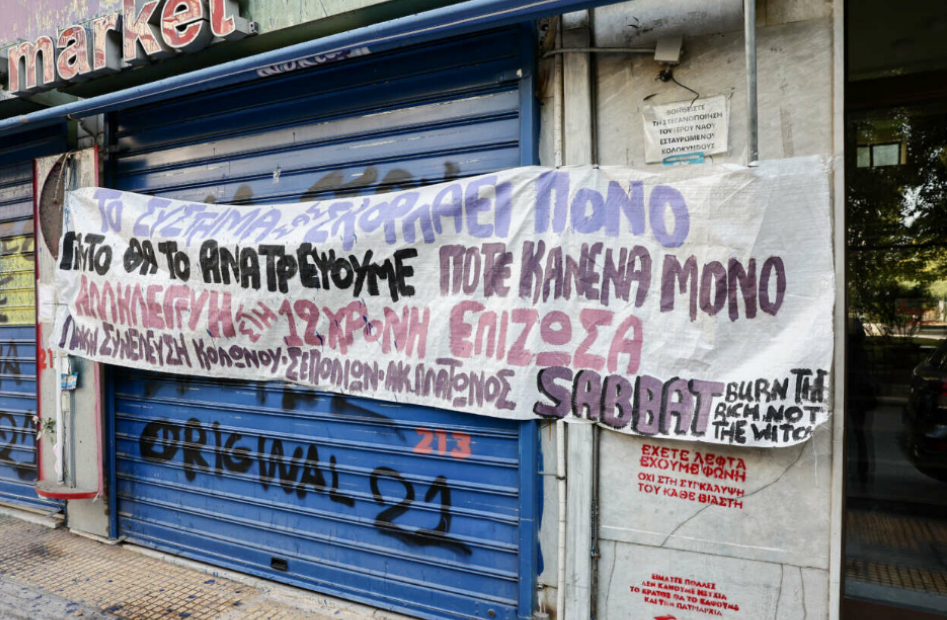 market
ΒΟΗΘΕΙΣΤΕ
ΤΗ ΣΤΕΓΑΝΟΠΟΙΗΣΗ
ΤΟΥ ΙΕΡΟΥ ΝΑΟΥ
ΕΣΤΑΥΡΩΜΕΝΟΥ
ΚΟΛΟΚΥΝΘΟΥΣ
ΤΟ ΣΥΣΤΗΜΑ ΣΚΟΡΠΑΕΙ ΠΟΝΟ
ΘΑ ΤΟ ΑΝΑΤΡΕΨΟΥΜΕ ΠΟΤΕ ΚΑΝΕΝΑ ΜΟΝΟ
ΑΛΛΗΛΕΓΓΥΗ ΣΤΗ 12ΧΡΟΝΗ ΕΠΙΖΩΣΑ
ΛΑΪΚΗ ΣΥΝΕΛΕΥΣΗ ΚΟΛΩΝΟΥ·ΣΕΠΟΛΙΩΝ·ΑΚ.ΠΛΑΤΩΝΟΣ
SABBAT
BURN THE
RICH NOT
THE WITCH
213
ORIGINAL 21
21
ΕΧΕΤΕ ΛΕΦΤΑ
ΕΧΟΥΜΕ ΦΩΝΗ
ΟΧΙ ΣΤΗ ΣΥΓΚΑΛΥΨΗ
ΤΟΥ ΚΑΘΕ ΒΙΑΣΤΗ
ΕΙΜΑΣΤΕ ΠΟΛΛΕΣ
ΔΕΝ ΚΑΝΟΥΜΕ ΗΣΥΧΙΑ
ΤΟ ΚΡΑΤΟΣ ΘΑ ΤΟ ΚΑΨΟΥΜΕ
ΚΑΙ ΤΗΝ ΠΑΤΡΙΑΡΧΙΑ